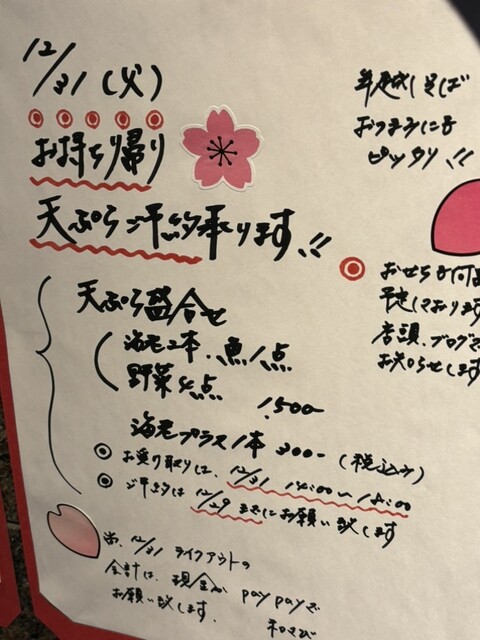 12/31(火)
お持ち帰り
天ぷらご予約承ります!!
天ぷら盛合せ
海老2本、魚1点
野菜4点
1,500-
海老プラス1本 300-(税込み)
お受け取りは、12/31 14:00〜18:00
ご予約は 12/29 までにお願い致します
尚、12/31 テイクアウトの
会計は、現金か PayPayで
お願い致します。
和さび
年越しそば
おつまみにも
ピッタリ!!
おせちも何
予定しております
店頭、ブログ
お知らせします